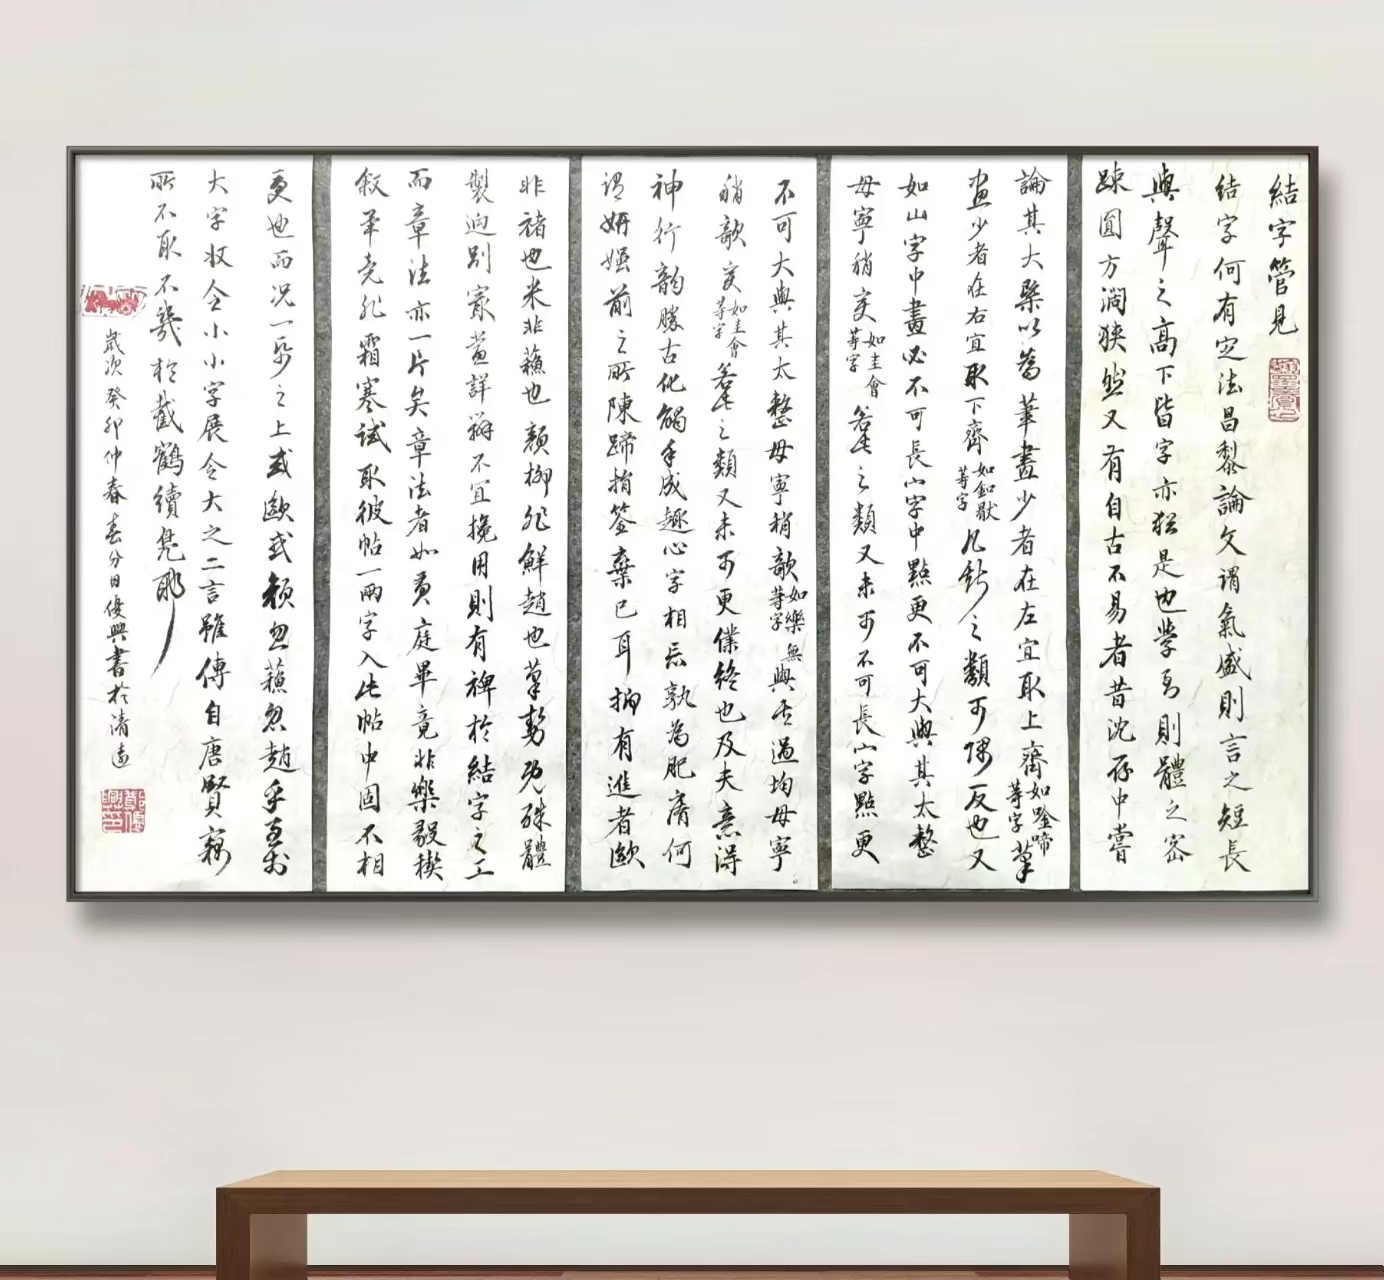 結字管見
結字何有定法昌黎論文謂氣盛則言之短長
與聲之高下皆字亦猶是也學焉則體之密
踈圓方濶狹然又有自古不易者昔沈存中嘗
論其大槩以為筆畫少者在左宜取上齊如唫啼等字筆
畫少者在右宜取下齊如釦獃等字凡斯之類可隅反也又
如山字中畫必不可長心字中點更不可大與其太整
毋寧稍变如圭會等字若此之類又未可不可長山字點更
不可大與其太整毋寧稍歌如樂無等字與其過均毋寧
稍歌变如圭會等字若此之類又未可更僕終也及夫意得
神行韵勝古化觸手成趣心字相忘孰為肥瘠何
謂妍媸前之所陳蹄捐筌棄已耳抑有進者歐
非褚也米非蘓也顏柳非鮮趙也筆勢既殊體
製迥別家當詳辯不宜攙用則有裨於結字之工
而章法亦一片矣章法者如黄庭畢竟非樂毅禊
敘筆先非霜寒試取彼帖一兩字入此帖中固不相
更也而况一
大字收令小小字展令大之二言雖傳自唐賢竊
所不取不幾於截鶴續凫耶
歲次癸卯仲春春分日優興書於清遠